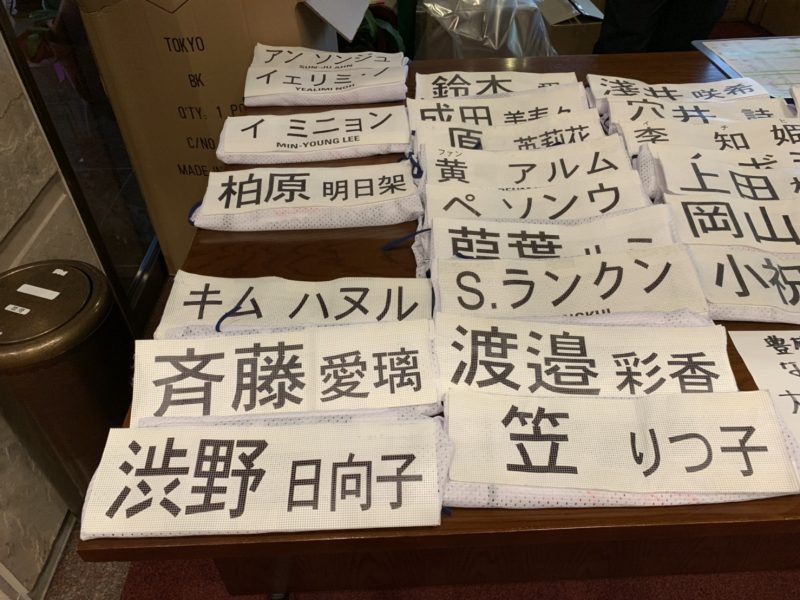 TOKYO
BK
Q'TY: 1 P
C/NO
MADE IN
アン ソンジュ
SUN-JU AHN
イェリミ・ノ
YEALIMI NOH
イ ミニョン
MIN-YOUNG LEE
柏原 明日架
キム ハヌル
斉藤 愛璃
渋野 日向子
鈴木
成田 美寿々
原 英莉花
ファン
黄 アルム
ペ ソンウ
S.ランクン
渡邉 彩香
笠 りつ子
淺井 咲希
穴井 詩
イ チ ヒ
李 知 姫
上田
岡山
小祝